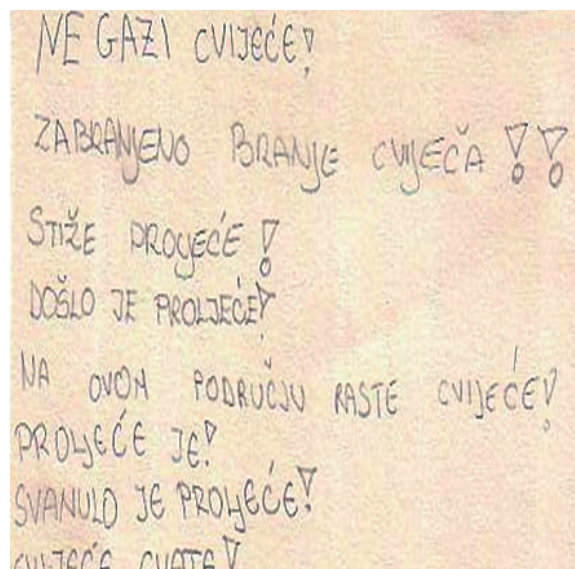 NE GAZI CVIJEĆE!
ZABRANJENO BRANJE CVIJEČA!!
STIŽE PROLJEĆE!
DOŠLO JE PROLJEĆE!
NA OVOM PODRUČJU RASTE CVIJEĆE!
PROLJEĆE JE!
SVANULO JE PROLJEĆE!
CVIJEĆE CVATE!